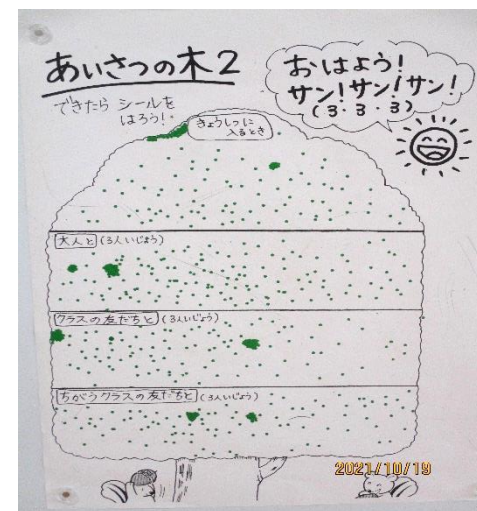 あいさつの木2
できたら シールを
はろう!
おはよう!
サン!サン!サン!
(3・3・3)
きょうしつに
入るとき
大人と(3人いじょう)
クラスの友だちと(3人いじょう)
ちがうクラスの友だちと(3人いじょう)
2021/10/19